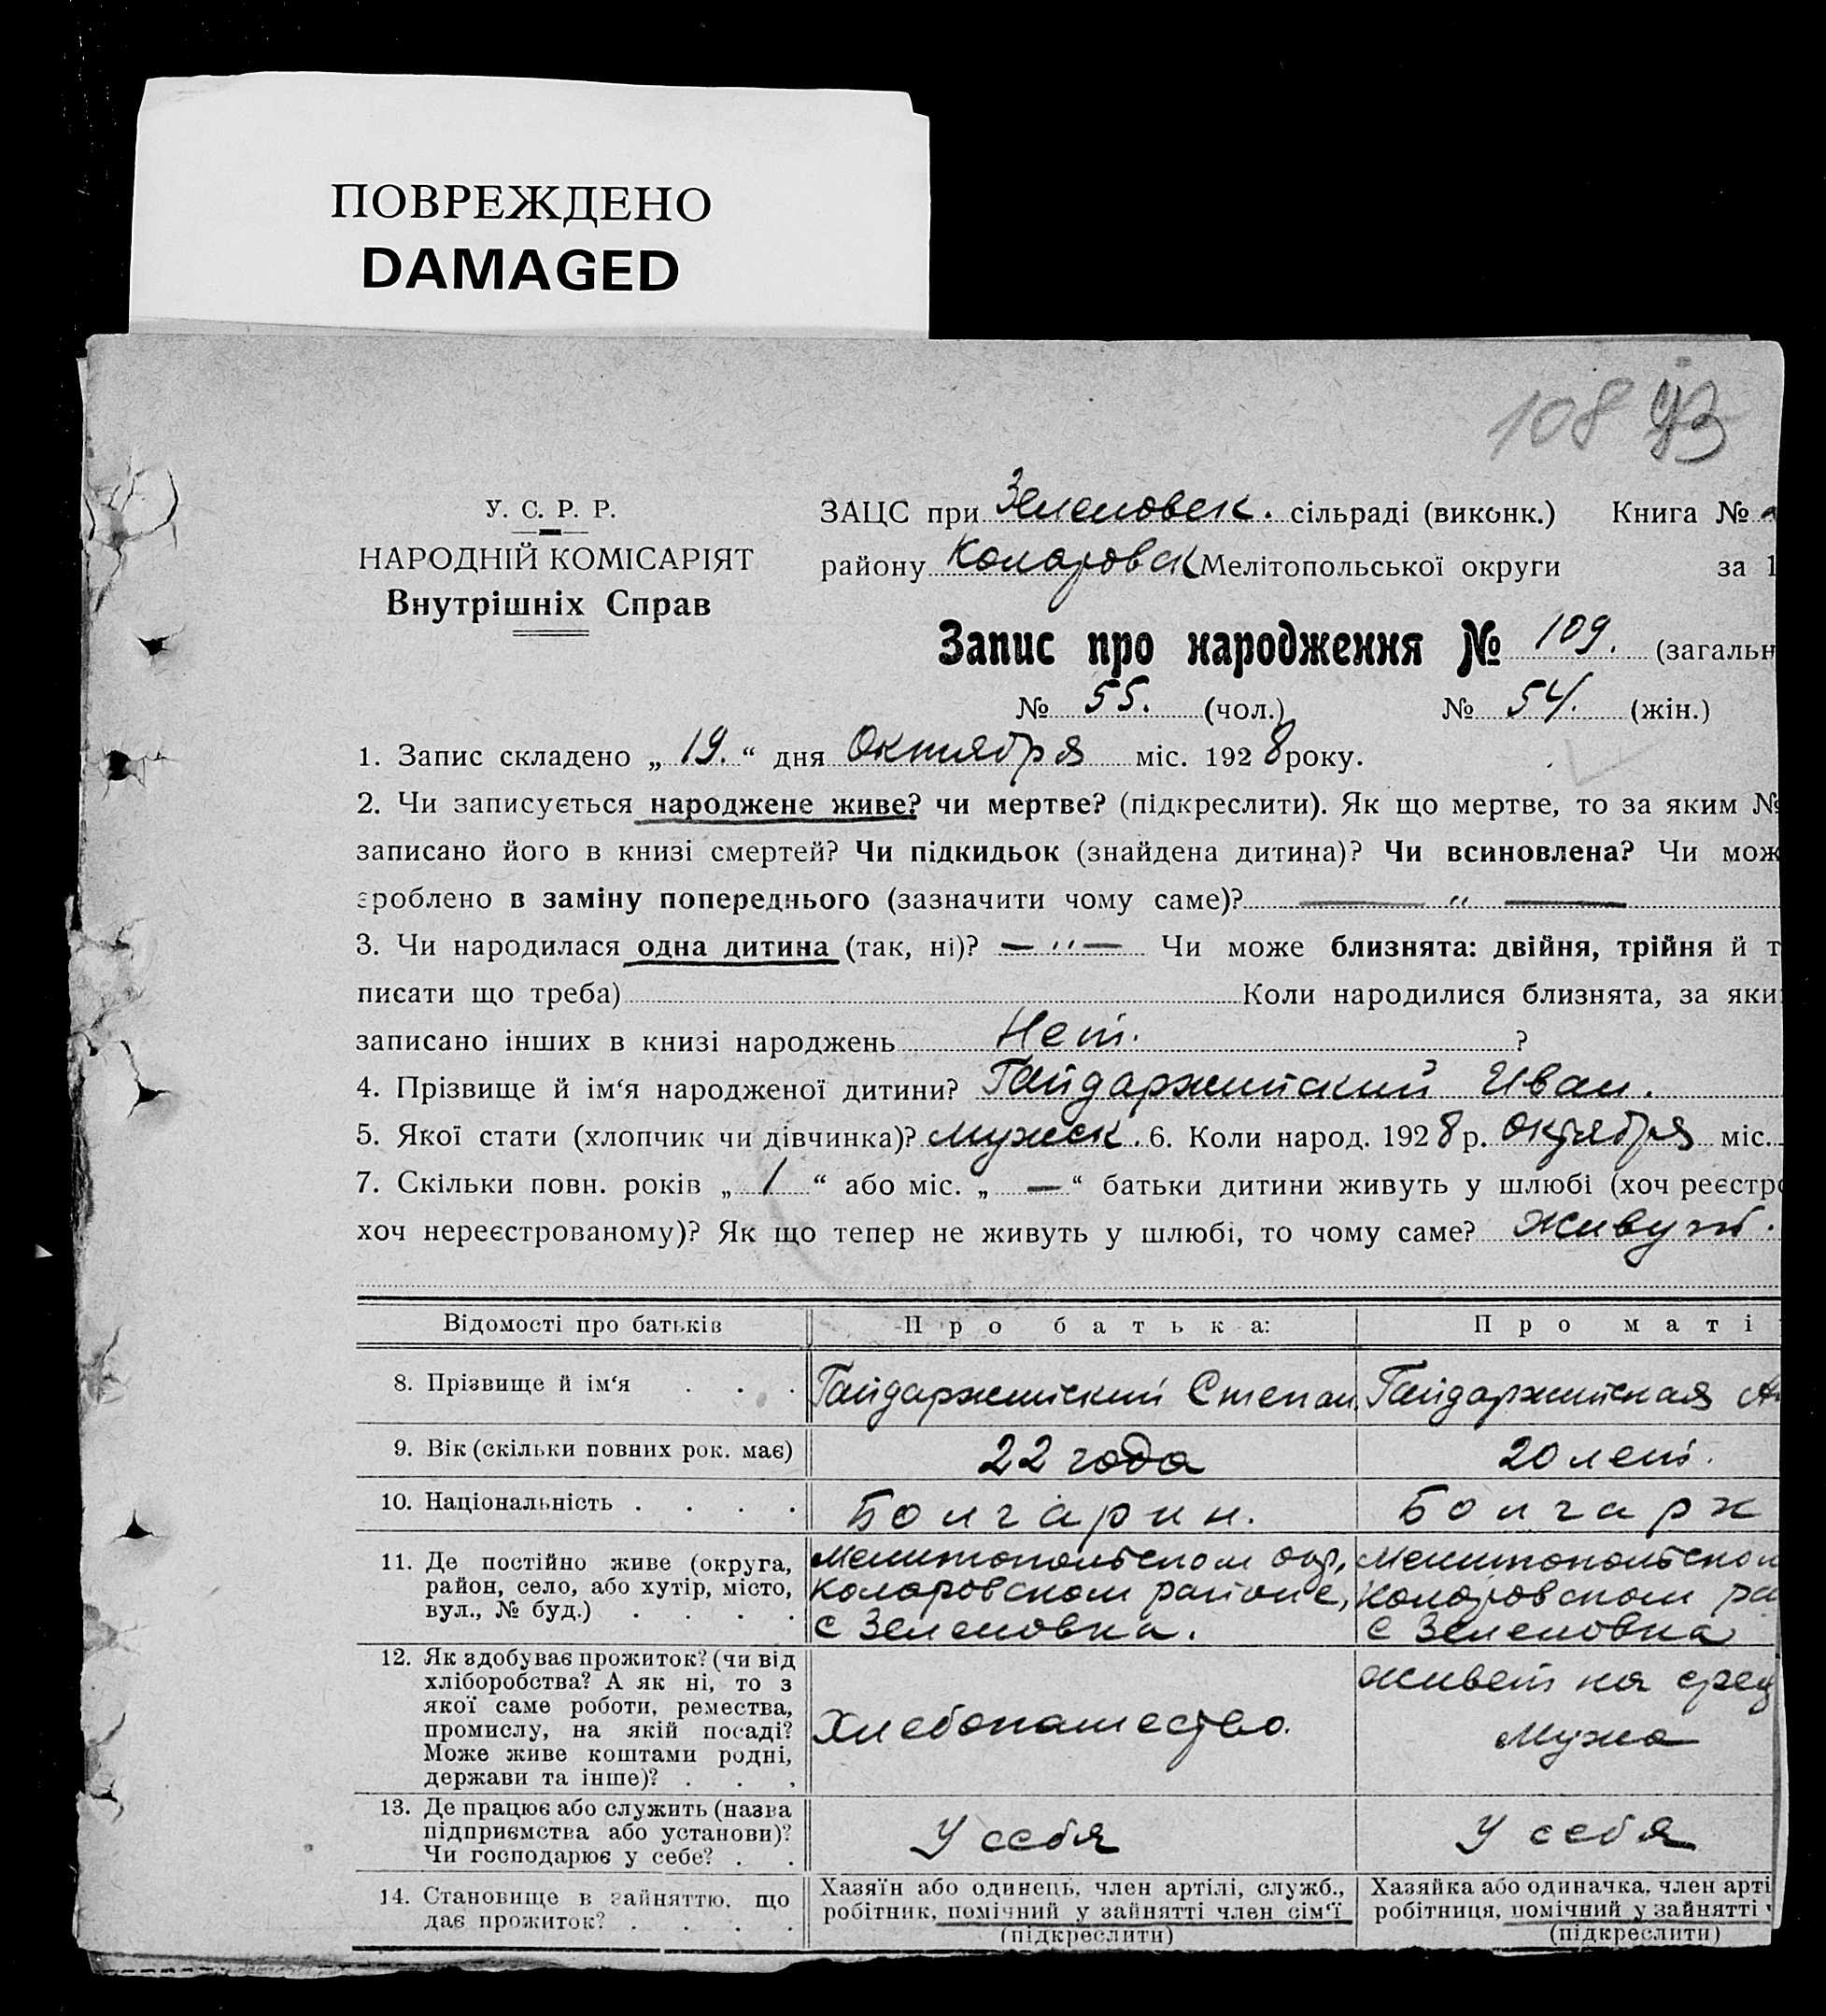 ПОВРЕЖДЕНО
DAMAGED
108 93
У. С. Р. Р.
НАРОДНІЙ КОМІСАРІЯТ
Внутрішніх Справ
ЗАЦС при Зеленовск. сільраді (виконк.) Книга №
району Коларовск Мелітопольської округи за 1
Запис про народження № 109. (загальн
№ 55. (чол.) № 54. (жін.)
1. Запис складено „ 19. “ дня Октября міс. 1928 року.
2. Чи записується народжене живе? чи мертве? (підкреслити). Як що мертве, то за яким №
записано його в книзі смертей? Чи підкидьок (знайдена дитина)? Чи всиновлена? Чи мож
зроблено в заміну попереднього (зазначити чому саме)? — „ —
3. Чи народилася одна дитина (так, ні)? — „ — Чи може близнята: двійня, трійня й т
писати що треба) Коли народилися близнята, за яки
записано інших в книзі народжень Нет. ?
4. Прізвище й ім‘я народженої дитини? Гайдаржийский Иван.
5. Якої стати (хлопчик чи дівчинка)? Мужск. 6. Коли народ. 1928 р. Октября міс.
7. Скільки повн. років „ 1 “ або міс. „ — “ батьки дитини живуть у шлюбі (хоч реєстро
хоч нереєстрованому)? Як що тепер не живуть у шлюбі, то чому саме? Живут.
Відомості про батьків Про батька: Про маті
8. Прізвище й ім‘я . . . Гайдаржийский Степан. Гайдаржийская А
9. Вік (скільки повних рок. має) 22 года 20 лет.
10. Національність . . . . Болгарин. Болгарк
11. Де постійно живе (округа, район, село, або хутір, місто, вул., № буд.) . . . .
Мелитопольском окр,
Коларовском районе,
с Зеленовка.
Мелитопольском
Коларовском ра
с Зеленовка
12. Як здобуває прожиток? (чи від
хліборобства? А як ні, то з
якої саме роботи, ремества,
промислу, на якій посаді?
Може живе коштами родні,
держави та інше)? . . .
Хлебопашество.
Живет на сред
Мужа
13. Де працює або служить (назва
підприємства або установи)?
Чи господарює у себе? . .
У себя
У себя
14. Становище в зайняттю, що
дає прожиток? . . . .
Хазяїн або одинець, член артілі, служб.,
робітник, помічний у зайнятті член сім‘ї
(підкреслити)
Хазяйка або одиначка, член арті
робітниця, помічний у зайнятті
(підкреслити)